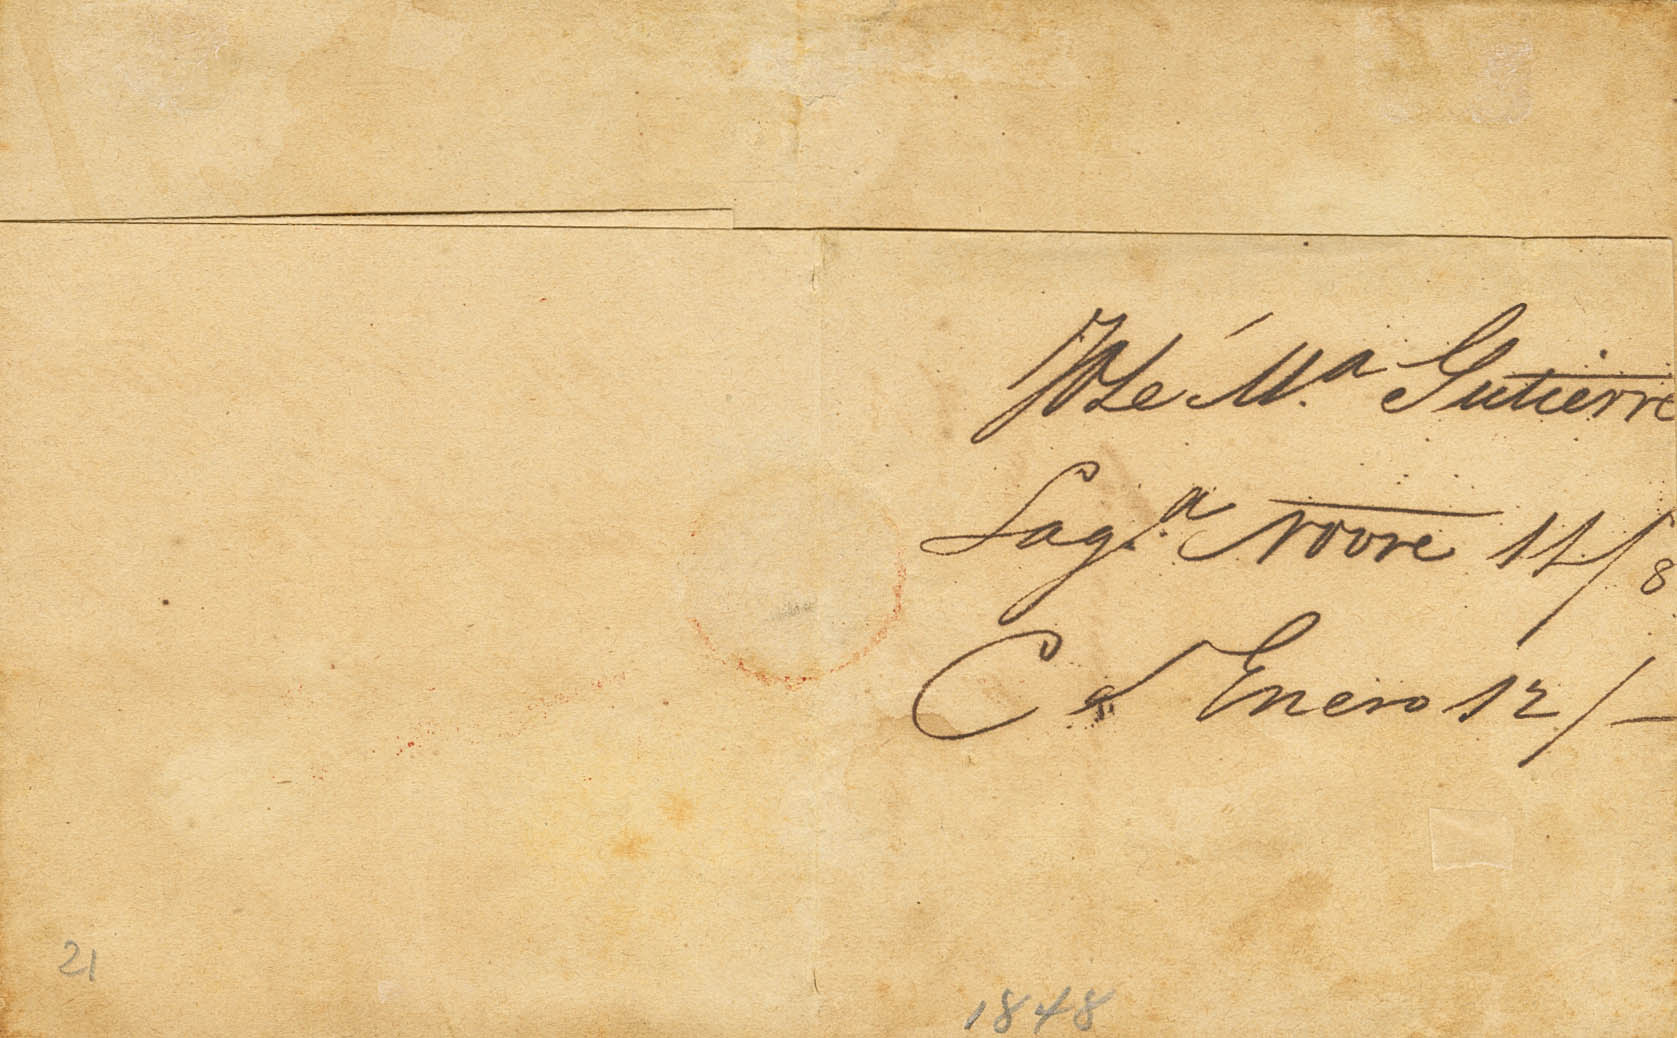 José M.ª Gutierre
Sag.ª Novre 11/8
C d Enero 12/—
21
1848